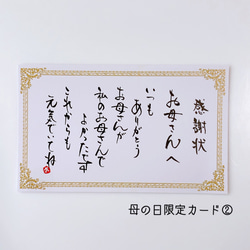 感謝状
お母さんへ
いつも
ありがとう
お母さんが
私のお母さんで
よかったです
これからも
元気でいてね
母の日限定カード②